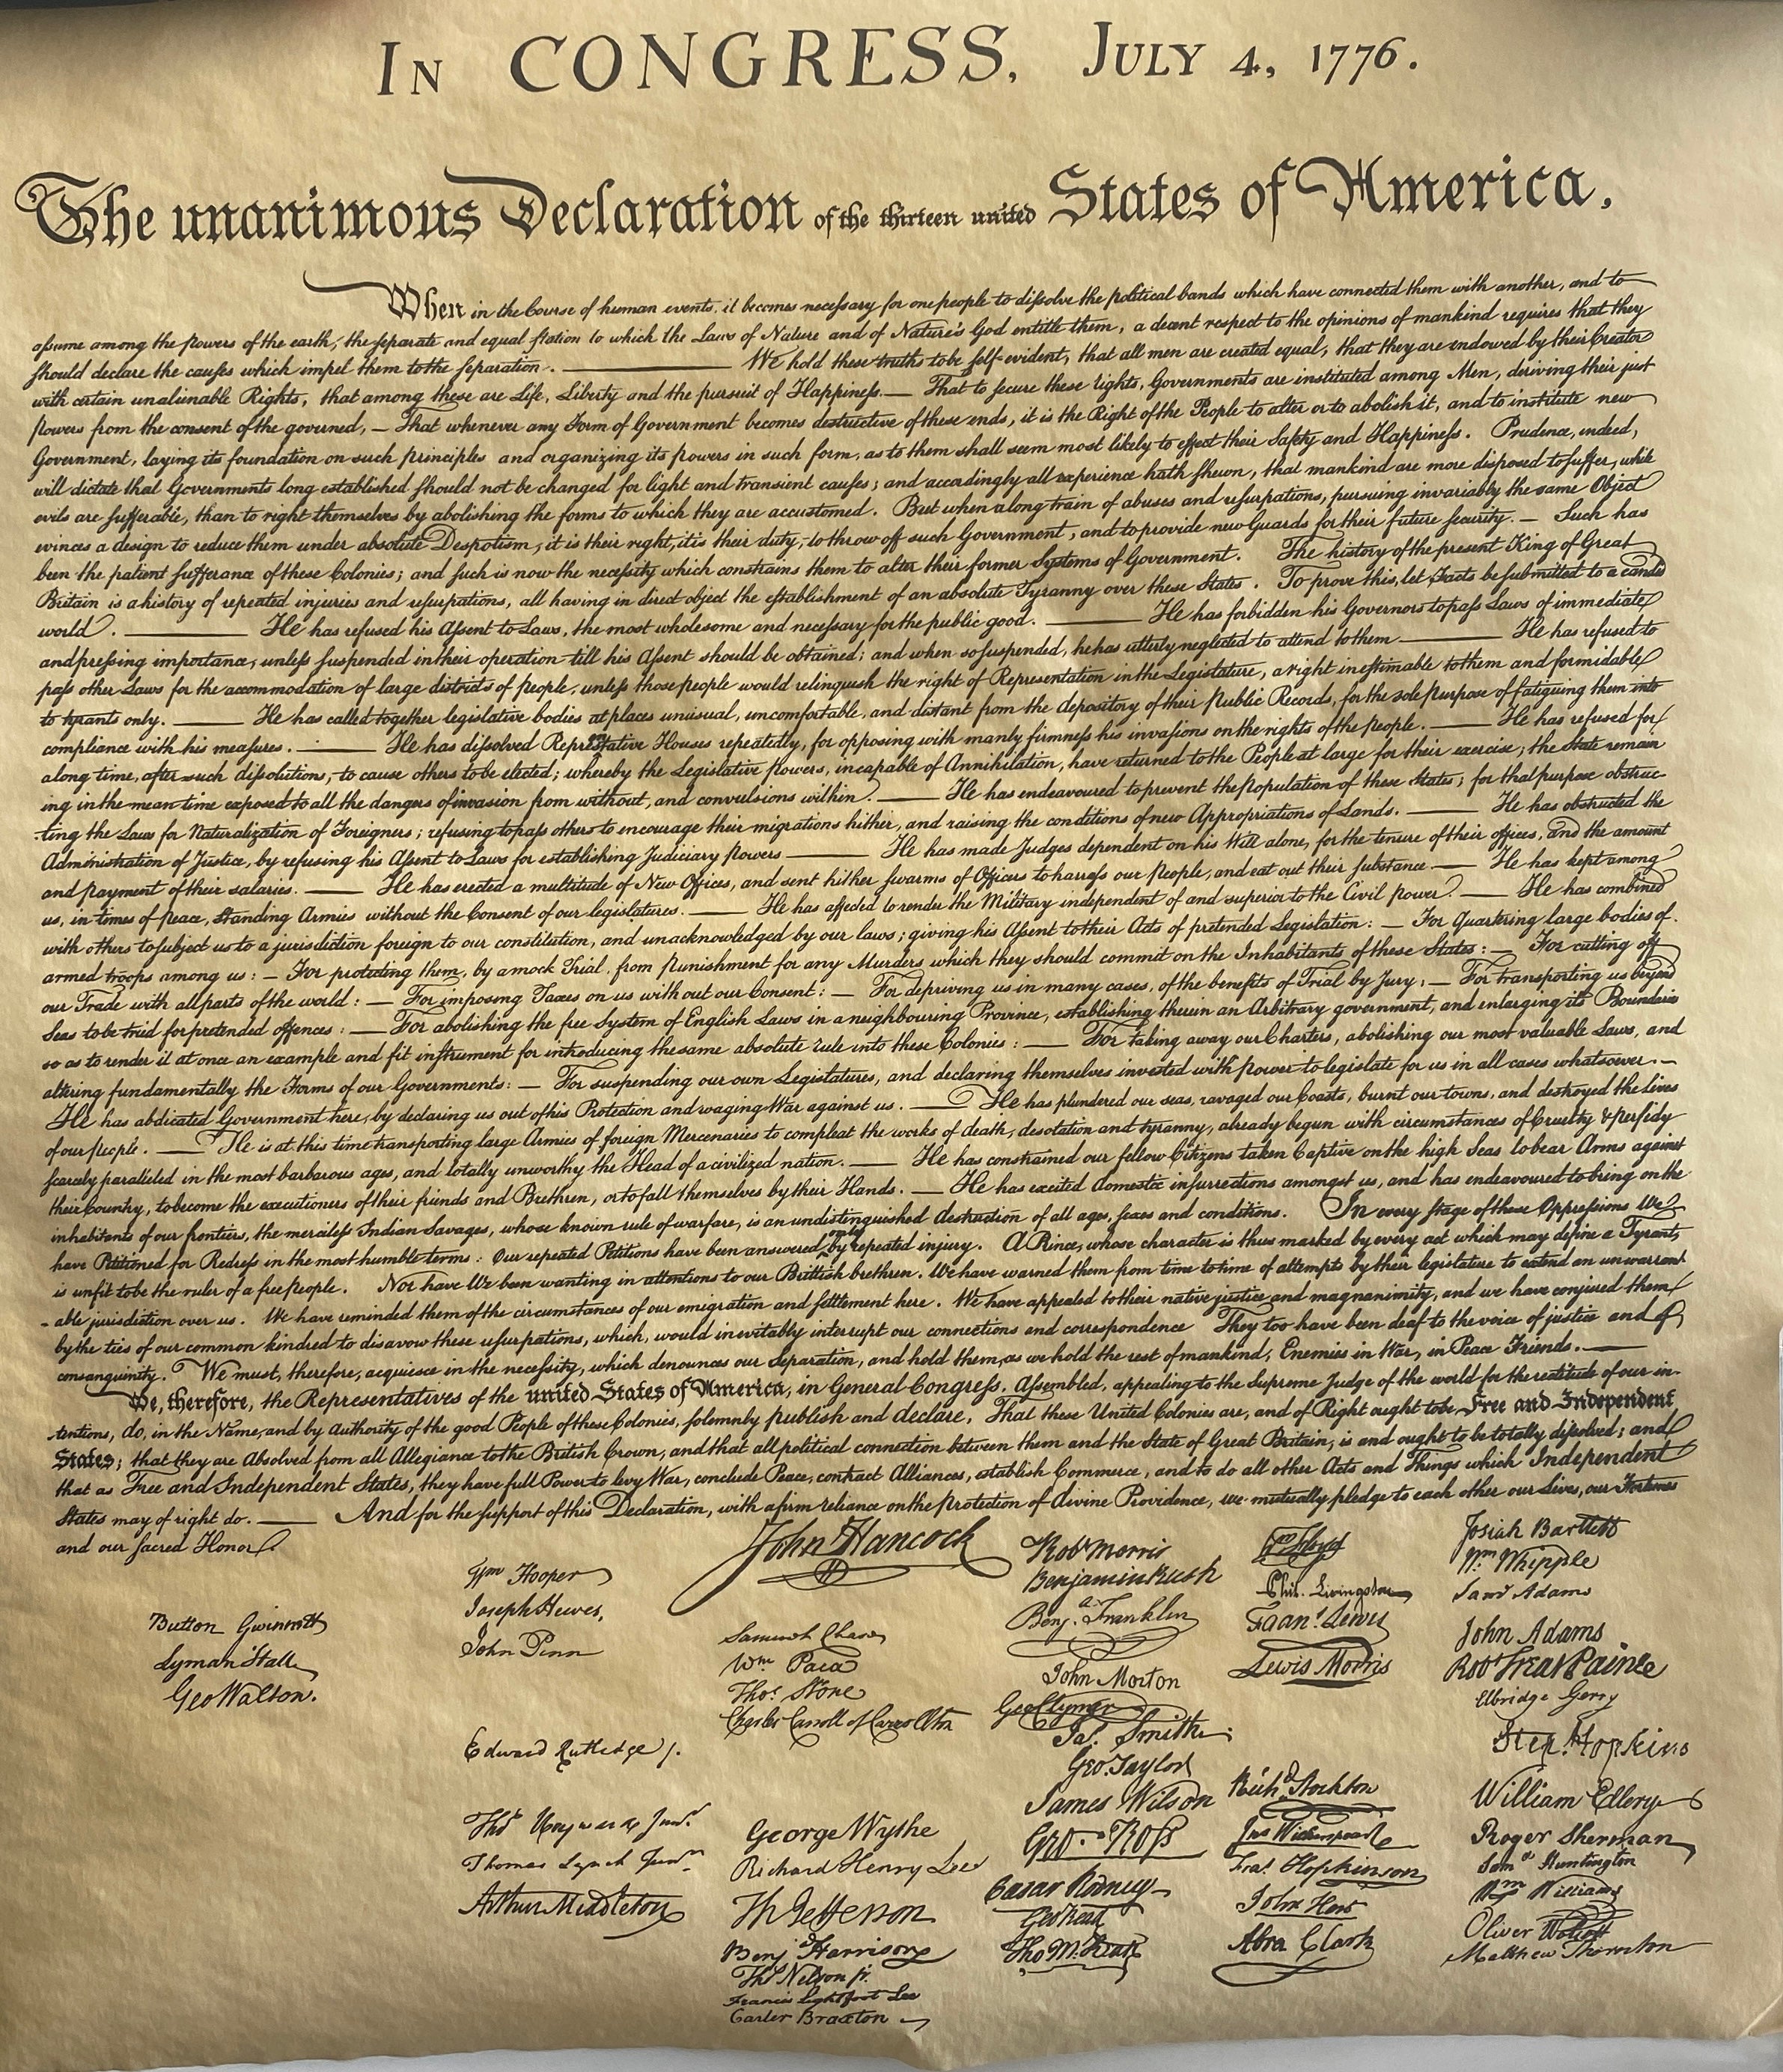 IN CONGRESS, JULY 4, 1776.
The unanimous Declaration of the thirteen united States of America.
When in the Course of human events, it becomes necessary for one people to dissolve the political bands which have connected them with another, and to
assume among the powers of the earth, the separate and equal station to which the Laws of Nature and of Nature's God entitle them, a decent respect to the opinions of mankind requires that they
should declare the causes which impel them to the separation. ——— We hold these truths to be self-evident, that all men are created equal, that they are endowed by their Creator
with certain unalienable Rights, that among these are Life, Liberty and the pursuit of Happiness. — That to secure these rights, Governments are instituted among Men, deriving their just
powers from the consent of the governed, — That whenever any Form of Government becomes destructive of these ends, it is the Right of the People to alter or to abolish it, and to institute new
Government, laying its foundation on such principles and organizing its powers in such form, as to them shall seem most likely to effect their Safety and Happiness. Prudence, indeed,
will dictate that Governments long established should not be changed for light and transient causes; and accordingly all experience hath shewn, that mankind are more disposed to suffer, while
evils are sufferable, than to right themselves by abolishing the forms to which they are accustomed. But when a long train of abuses and usurpations, pursuing invariably the same Object
evinces a design to reduce them under absolute Despotism, it is their right, it is their duty, to throw off such Government, and to provide new Guards for their future security. — Such has
been the patient sufferance of these Colonies; and such is now the necessity which constrains them to alter their former Systems of Government. The history of the present King of Great
Britain is a history of repeated injuries and usurpations, all having in direct object the establishment of an absolute Tyranny over these States. To prove this, let Facts be submitted to a candid
world. ——— He has refused his Assent to Laws, the most wholesome and necessary for the public good. ——— He has forbidden his Governors to pass Laws of immediate
and pressing importance, unless suspended in their operation till his Assent should be obtained; and when so suspended, he has utterly neglected to attend to them. ——— He has refused to
pass other Laws for the accommodation of large districts of people, unless those people would relinquish the right of Representation in the Legislature, a right inestimable to them and formidable
to tyrants only. ——— He has called together legislative bodies at places unusual, uncomfortable, and distant from the depository of their Public Records, for the sole purpose of fatiguing them into
compliance with his measures. ——— He has dissolved Representative Houses repeatedly, for opposing with manly firmness his invasions on the rights of the people. ——— He has refused for
a long time, after such dissolutions, to cause others to be elected; whereby the Legislative powers, incapable of Annihilation, have returned to the People at large for their exercise; the State remain
ing in the mean time exposed to all the dangers of invasion from without, and convulsions within. ——— He has endeavoured to prevent the population of these States; for that purpose obstruc-
ting the Laws for Naturalization of Foreigners; refusing to pass others to encourage their migrations hither, and raising the conditions of new Appropriations of Lands. ——— He has obstructed the
Administration of Justice, by refusing his Assent to Laws for establishing Judiciary powers. ——— He has made Judges dependent on his Will alone, for the tenure of their offices, and the amount
and payment of their salaries. ——— He has erected a multitude of New Offices, and sent hither swarms of Officers to harrass our People, and eat out their substance. — He has kept among
us, in times of peace, Standing Armies without the Consent of our legislatures. ——— He has affected to render the Military independent of and superior to the Civil power. — He has combined
with others to subject us to a jurisdiction foreign to our constitution, and unacknowledged by our laws; giving his Assent to their Acts of pretended Legislation: — For Quartering large bodies of
armed troops among us: — For protecting them, by a mock Trial, from punishment for any Murders which they should commit on the Inhabitants of these States: — For cutting off
our Trade with all parts of the world: — For imposing Taxes on us without our Consent: — For depriving us in many cases, of the benefits of Trial by Jury: — For transporting us beyond
Seas to be tried for pretended offences: — For abolishing the free System of English Laws in a neighbouring Province, establishing therein an Arbitrary government, and enlarging its Boundaries
so as to render it at once an example and fit instrument for introducing the same absolute rule into these Colonies: — For taking away our Charters, abolishing our most valuable Laws, and
altering fundamentally the Forms of our Governments: — For suspending our own Legislatures, and declaring themselves invested with power to legislate for us in all cases whatsoever. —
He has abdicated Government here, by declaring us out of his Protection and waging War against us. — He has plundered our seas, ravaged our Coasts, burnt our towns, and destroyed the lives
of our people. — He is at this time transporting large Armies of foreign Mercenaries to compleat the works of death, desolation and tyranny, already begun with circumstances of Cruelty & perfidy
scarcely paralleled in the most barbarous ages, and totally unworthy the Head of a civilized nation. — He has constrained our fellow Citizens taken Captive on the high Seas to bear Arms against
their Country, to become the executioners of their friends and Brethren, or to fall themselves by their Hands. — He has excited domestic insurrections amongst us, and has endeavoured to bring on the
inhabitants of our frontiers, the merciless Indian Savages, whose known rule of warfare, is an undistinguished destruction of all ages, sexes and conditions. In every stage of these Oppressions We
have Petitioned for Redress in the most humble terms: Our repeated Petitions have been answered only by repeated injury. A Prince, whose character is thus marked by every act which may define a Tyrant,
is unfit to be the ruler of a free people. Nor have We been wanting in attentions to our Brittish brethren. We have warned them from time to time of attempts by their legislature to extend an unwarrant
-able jurisdiction over us. We have reminded them of the circumstances of our emigration and settlement here. We have appealed to their native justice and magnanimity, and we have conjured them
by the ties of our common kindred to disavow these usurpations, which, would inevitably interrupt our connections and correspondence They too have been deaf to the voice of justice and of
consanguinity. We must, therefore, acquiesce in the necessity, which denounces our Separation, and hold them, as we hold the rest of mankind, Enemies in War, in Peace Friends. —
We, therefore, the Representatives of the united States of America, in General Congress, Assembled, appealing to the Supreme Judge of the world for the rectitude of our in-
tentions, do, in the Name, and by Authority of the good People of these Colonies, solemnly publish and declare, That these United Colonies are, and of Right ought to be Free and Independent
States; that they are Absolved from all Allegiance to the British Crown, and that all political connection between them and the State of Great Britain, is and ought to be totally dissolved; and
that as Free and Independent States, they have full Power to levy War, conclude Peace, contract Alliances, establish Commerce, and to do all other Acts and Things which Independent
States may of right do. ——— And for the support of this Declaration, with a firm reliance on the protection of divine Providence, we mutually pledge to each other our Lives, our Fortunes
and our sacred Honor.
Button Gwinnett
Lyman Hall
Geo Walton.
Wm Hooper
Joseph Hewes,
John Penn
Edward Rutledge /.
Thos Heyward Junr.
Thomas Lynch Junr.
Arthur Middleton
John Hancock
Samuel Chase
Wm. Paca
Thos. Stone
Charles Carroll of Carrollton
George Wythe
Richard Henry Lee
Th Jefferson
Benj Harrison
Thos Nelson jr.
Francis Lightfoot Lee
Carter Braxton
Robt Morris
Benjamin Rush
Benj. Franklin
John Morton
Geo Clymer
Jas. Smith
Geo. Taylor
James Wilson
Geo. Ross
Caesar Rodney
Geo Read
Tho M:Kean
Wm Floyd
Phil. Livingston
Frans. Lewis
Lewis Morris
Richd. Stockton
Jno Witherspoon
Fras. Hopkinson
John Hart
Abra Clark
Josiah Bartlett
Wm: Whipple
Saml Adams
John Adams
Robt Treat Paine
Elbridge Gerry
Step. Hopkins
William Ellery
Roger Sherman
Saml Huntington
Wm Williams
Oliver Wolcott
Matthew Thornton